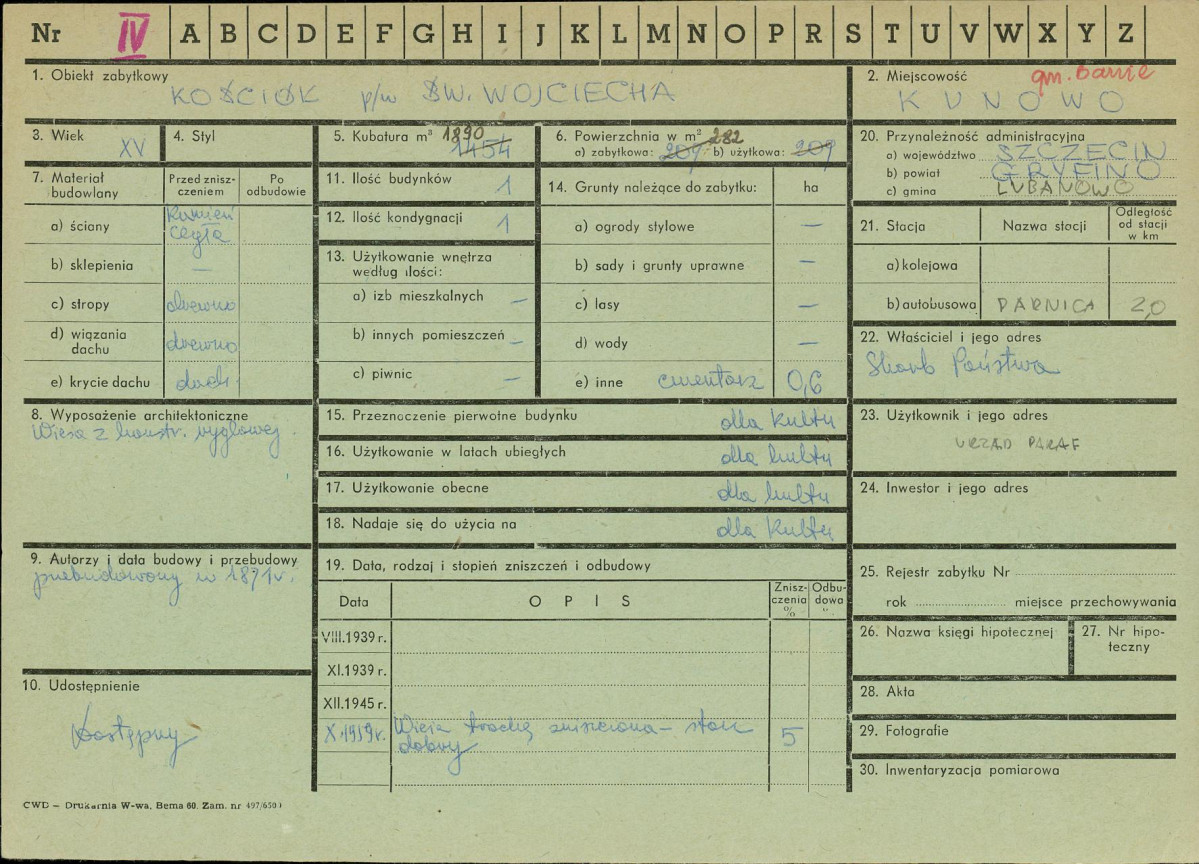 Nr IV A B C D E F G H I J K L M N O P R S T U V W X Y Z
1. Obiekt zabytkowy
KOŚCIÓŁ p/w ŚW. WOJCIECHA
2. Miejscowość
gm. Banie
KUNOWO
3. Wiek
XV
4. Styl
5. Kubatura m³ 1890
1454
6. Powierzchnia w m² 282
a) zabytkowa: 209 b) użytkowa: 209
20. Przynależność administracyjna
a) województwo SZCZECIN
b) powiat GRYFINO
c) gmina LUBANOWO
7. Materiał budowlany
Przed zniszczeniem
Po odbudowie
a) ściany kamień
cegła
b) sklepienia —
c) stropy drewno
d) wiązania dachu drewno
e) krycie dachu dach.
11. Ilość budynków 1
12. Ilość kondygnacji 1
13. Użytkowanie wnętrza
według ilości:
a) izb mieszkalnych —
b) innych pomieszczeń —
c) piwnic —
14. Grunty należące do zabytku: ha
a) ogrody stylowe —
b) sady i grunty uprawne —
c) lasy —
d) wody —
e) inne cmentarz 0,6
21. Stacja
Nazwa stacji
Odległość
od stacji
w km
a) kolejowa
b) autobusowa PARNICA 2,0
22. Właściciel i jego adres
Skarb Państwa
8. Wyposażenie architektoniczne
Wieża z konstr. ryglowej
15. Przeznaczenie pierwotne budynku dla kultu
16. Użytkowanie w latach ubiegłych dla kultu
17. Użytkowanie obecne dla kultu
18. Nadaje się do użycia na dla kultu
23. Użytkownik i jego adres
URZĄD PARAF
24. Inwestor i jego adres
9. Autorzy i data budowy i przebudowy
przebudowany w 1871r.
19. Data, rodzaj i stopień zniszczeń i odbudowy
Data
OPIS
Zniszczenia
%
Odbudowa
%
VIII.1939 r.
XI.1939 r.
XII.1945 r.
X.1959r. Wieża trochę zniszczona — stan
dobry 5
25. Rejestr zabytku Nr
rok miejsce przechowywania
26. Nazwa księgi hipotecznej
27. Nr hipoteczny
10. Udostępnienie
Dostępny
28. Akta
29. Fotografie
30. Inwentaryzacja pomiarowa
CWD – Drukarnia W-wa, Bema 60. Zam. nr 497/650